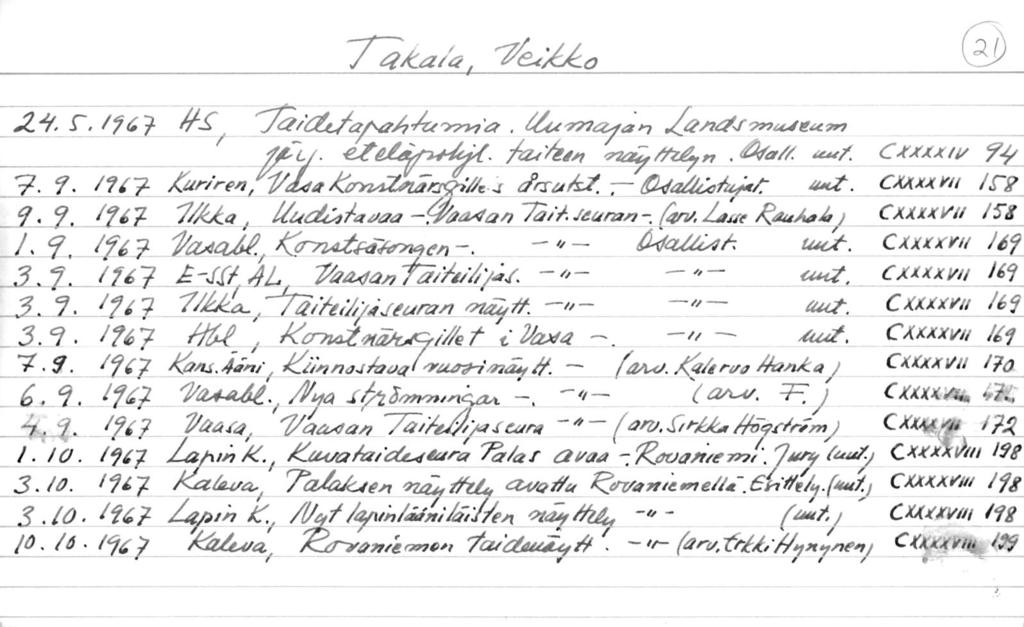 Takala, Veikko 21
24.5.1967 HS, Taidetapahtumia. Uumajan Landsmuseum
järj. eteläpohjl. taiteen näyttelyn. Osall. uut. CXXXXIV 94
7.9. 1967 Kuriren, Vasa Konstnärsgille:s årsutst. – Osallistujat. uut. CXXXXVII 158
9.9. 1967 Ilkka, Uudistavaa – Vaasan Tait.seuran –. (arv. Lasse Rauhala) CXXXXVII 158
1.9. 1967 Vasabl., Konstsäsongen –. –"– Osallist. uut. CXXXXVII 169
3.9. 1967 E-SSt, AL, Vaasan Taiteilijas. –"– –"– uut. CXXXXVII 169
3.9. 1967 Ilkka, Taiteilijaseuran näytt. –"– –"– uut. CXXXXVII 169
3.9. 1967 Hbl, Konstnärsgillet i Vasa –. –"– uut. CXXXXVII 169
7.9. 1967 Kans.Ääni, Kiinnostava vuosinäytt. – (arv. Kalervo Hanka) CXXXXVII 170
6.9. 1967 Vasabl., Nya strömningar –. –"– (arv. F.)
4.9. 1967 Vaasa, Vaasan Taiteilijaseura –"– (arv. Sirkka Högström) CXXXXVII 172
1.10. 1967 Lapin K., Kuvataideseura Palas avaa –. Rovaniemi. Jury (uut.) CXXXXVIII 198
3.10. 1967 Kaleva, Palaksen näyttely avattu Rovaniemellä. Esittely. (uut.) CXXXXVIII 198
3.10. 1967 Lapin K., Nyt lapinlääniläisten näyttely –"– (uut.) CXXXXVIII 198
10.10.1967 Kaleva, Rovaniemen taidenäytt. –"– (arv. Erkki Hynynen) CXXXXVIII 199